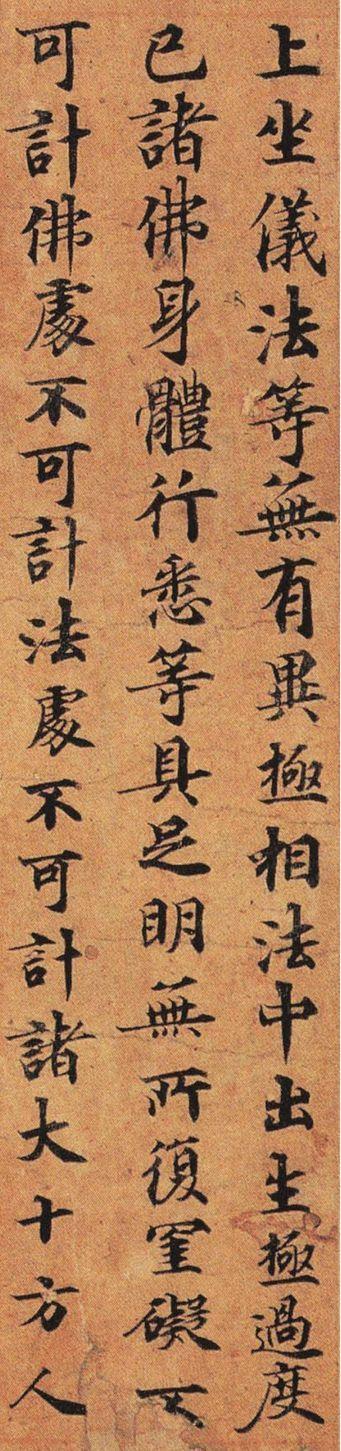 上坐儀法等無有異極相法中出生極過度
已諸佛身體行悉等具足明無所復罣礙不
可計佛處不可計法處不可計諸大十方人